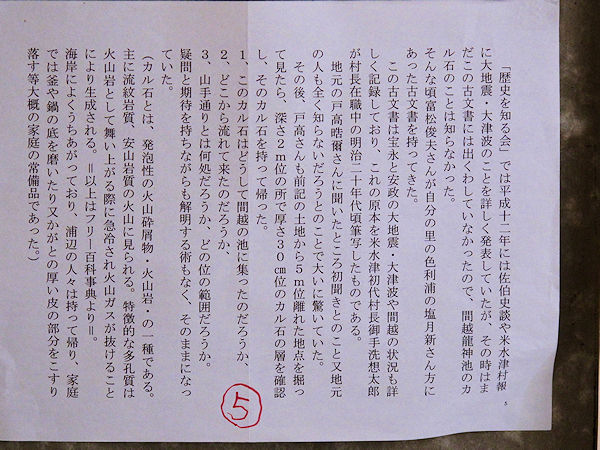 「歴史を知る会」では平成十二年には佐伯史談や米水津村報
に大地震・大津波のことを詳しく発表していたが、その時はま
だこの古文書には出くわしていなかったので、間越龍神池のカ
ル石のことは知らなかった。
そんな頃富松俊夫さんが自分の里の色利浦の塩月新さん方に
あった古文書を持ってきた。
この古文書は宝永と安政の大地震・大津波や間越の状況も詳
しく記録しており、これの原本を米水津初代村長御手洗想太郎
が村長在職中の明治二十年代頃筆写したものである。
地元の戸高晧爾さんに聞いたところ初聞きとのこと又地元
の人も全く知らないだろうとのことで大いに驚いていた。
その後、戸高さんも前記の土地から5m位離れた地点を掘っ
て見たら、深さ2m位の所で厚さ30㎝位のカル石の層を確認
し、そのカル石を持って帰った。
1、このカル石はどうして間越の池に集ったのだろうか、
2、どこから流れて来たのだろうか、
3、山手通りとは何処だろうか、どの位の範囲だろうか。
疑問と期待を持ちながらも解明する術もなく、そのままになっ
ていた。
（カル石とは、発泡性の火山砕屑物・火山岩・の一種である。
主に流紋岩質、安山岩質の火山に見られる。特徴的な多孔質は
火山岩として舞い上がる際に急冷され火山ガスが抜けること
により生成される。＝以上はフリー百科事典より＝。
海岸によくうちあがっており、浦辺の人々は持って帰り、家庭
では釜や鍋の底を磨いたり又かがとの厚い皮の部分をこすり
落す等大概の家庭の常備品であった。）
5
⑤